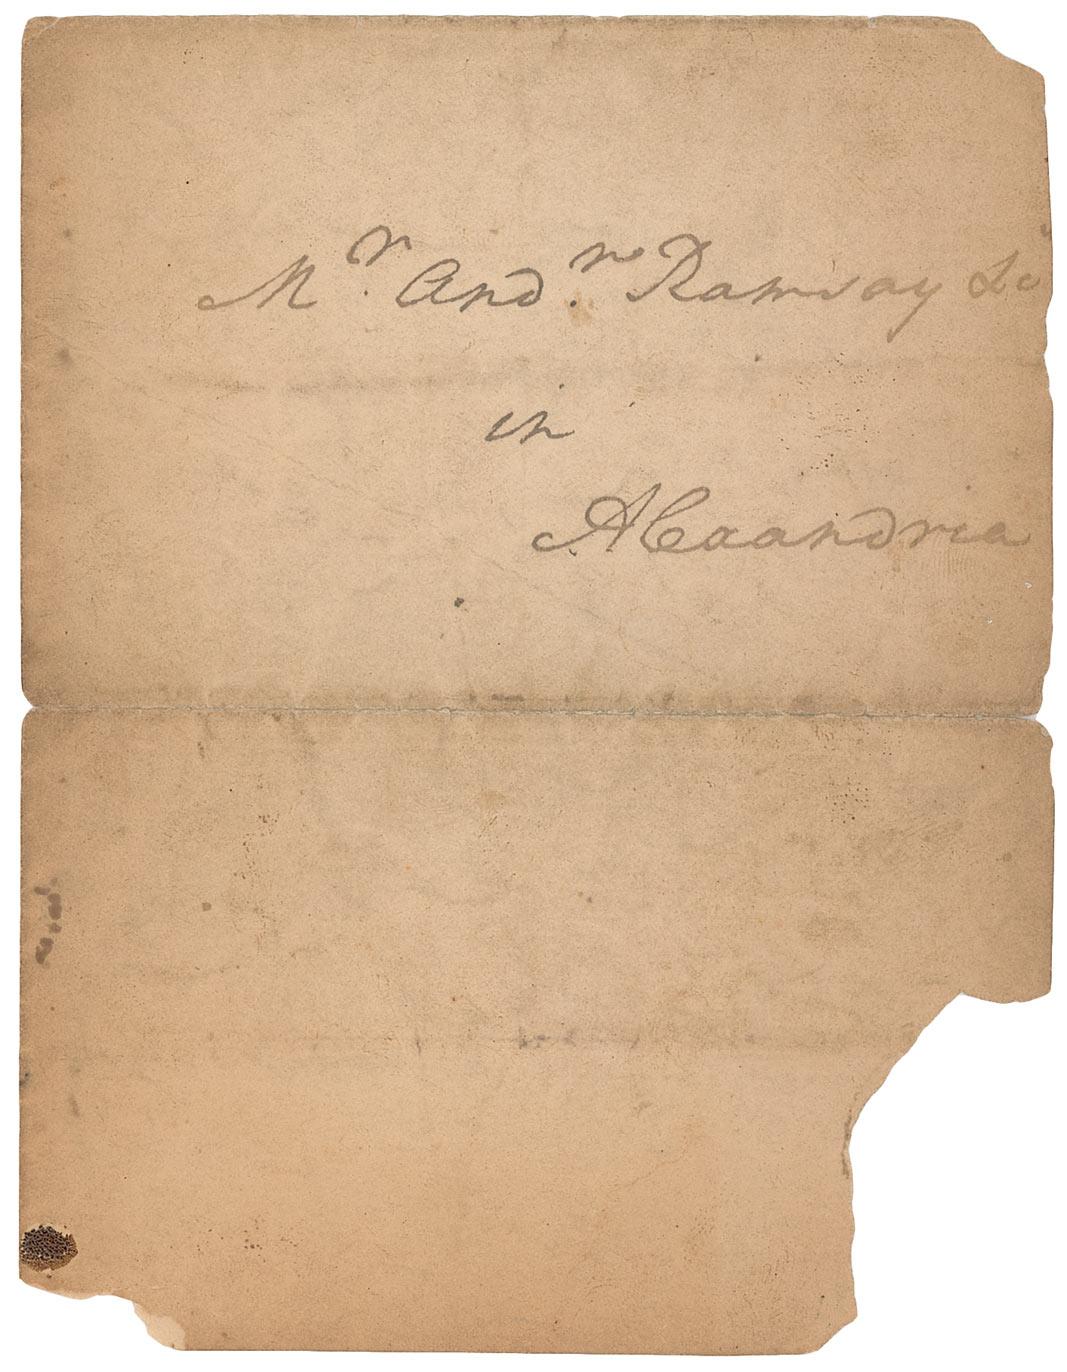 Mr. Andw. Ramsay
in
Alexandria